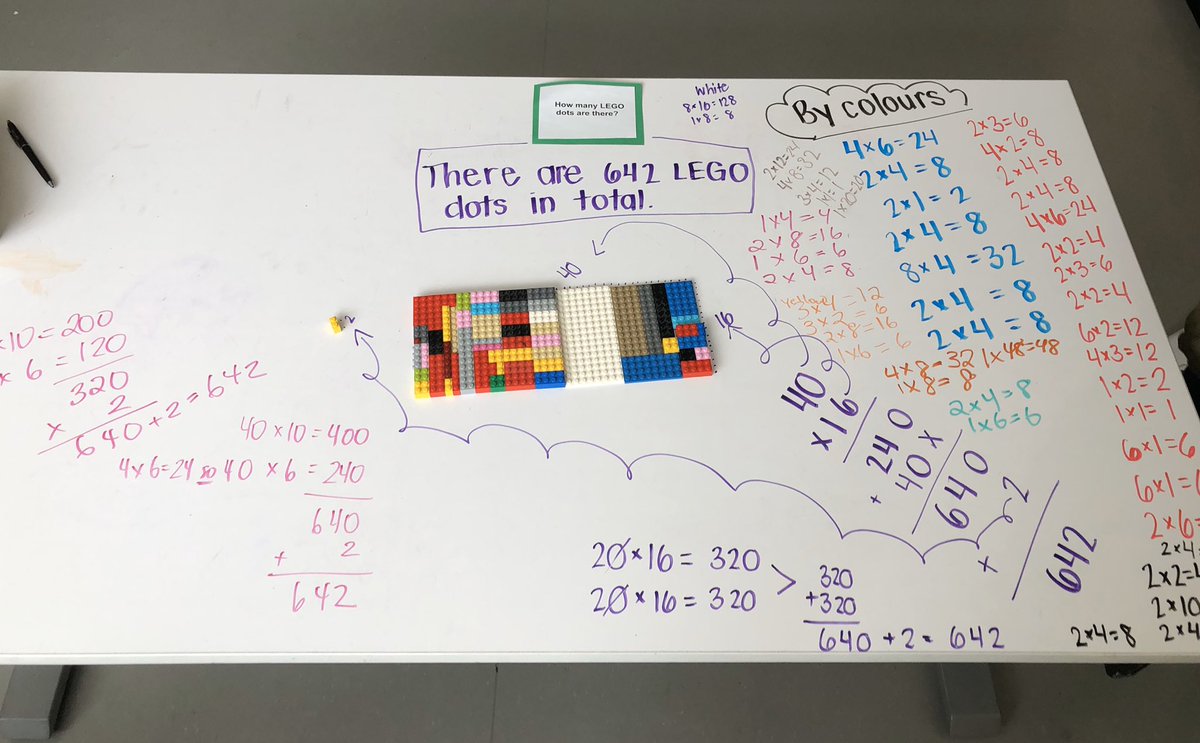 How many LEGO
dots are there?
White
8×16=128
1×8=8
By colours
There are 642 LEGO
dots in total.
40
16
2
2×12=24
4×8=32
3×4=12
1×20=20
1×4=4
2×8=16
1×6=6
2×4=8
4×6=24
2×4=8
2×1=2
2×4=8
8×4=32
2×4=8
2×4=8
2×3=6
4×2=8
2×4=8
2×4=8
4×6=24
2×2=4
2×3=6
2×2=4
6×2=12
4×3=12
1×2=2
1×1=1
6×1=6
6×1=
2×6=
yellow
=12
3×2=6
2×8=16
1×6=6
4×8=32 1×48=48
1×8=8
2×4=8
1×6=6
2×4
2×2=4
2×10
2×4=8 2×4
×10=200
× 6=120
320
× 2
640+2=642
40×10=400
4×6=24 so 40 ×6=240
640
+ 2
642
40
×16
240
+ 40×
640
+ 2
642
20×16=320
20×16=320
>
320
+320
640+2=642